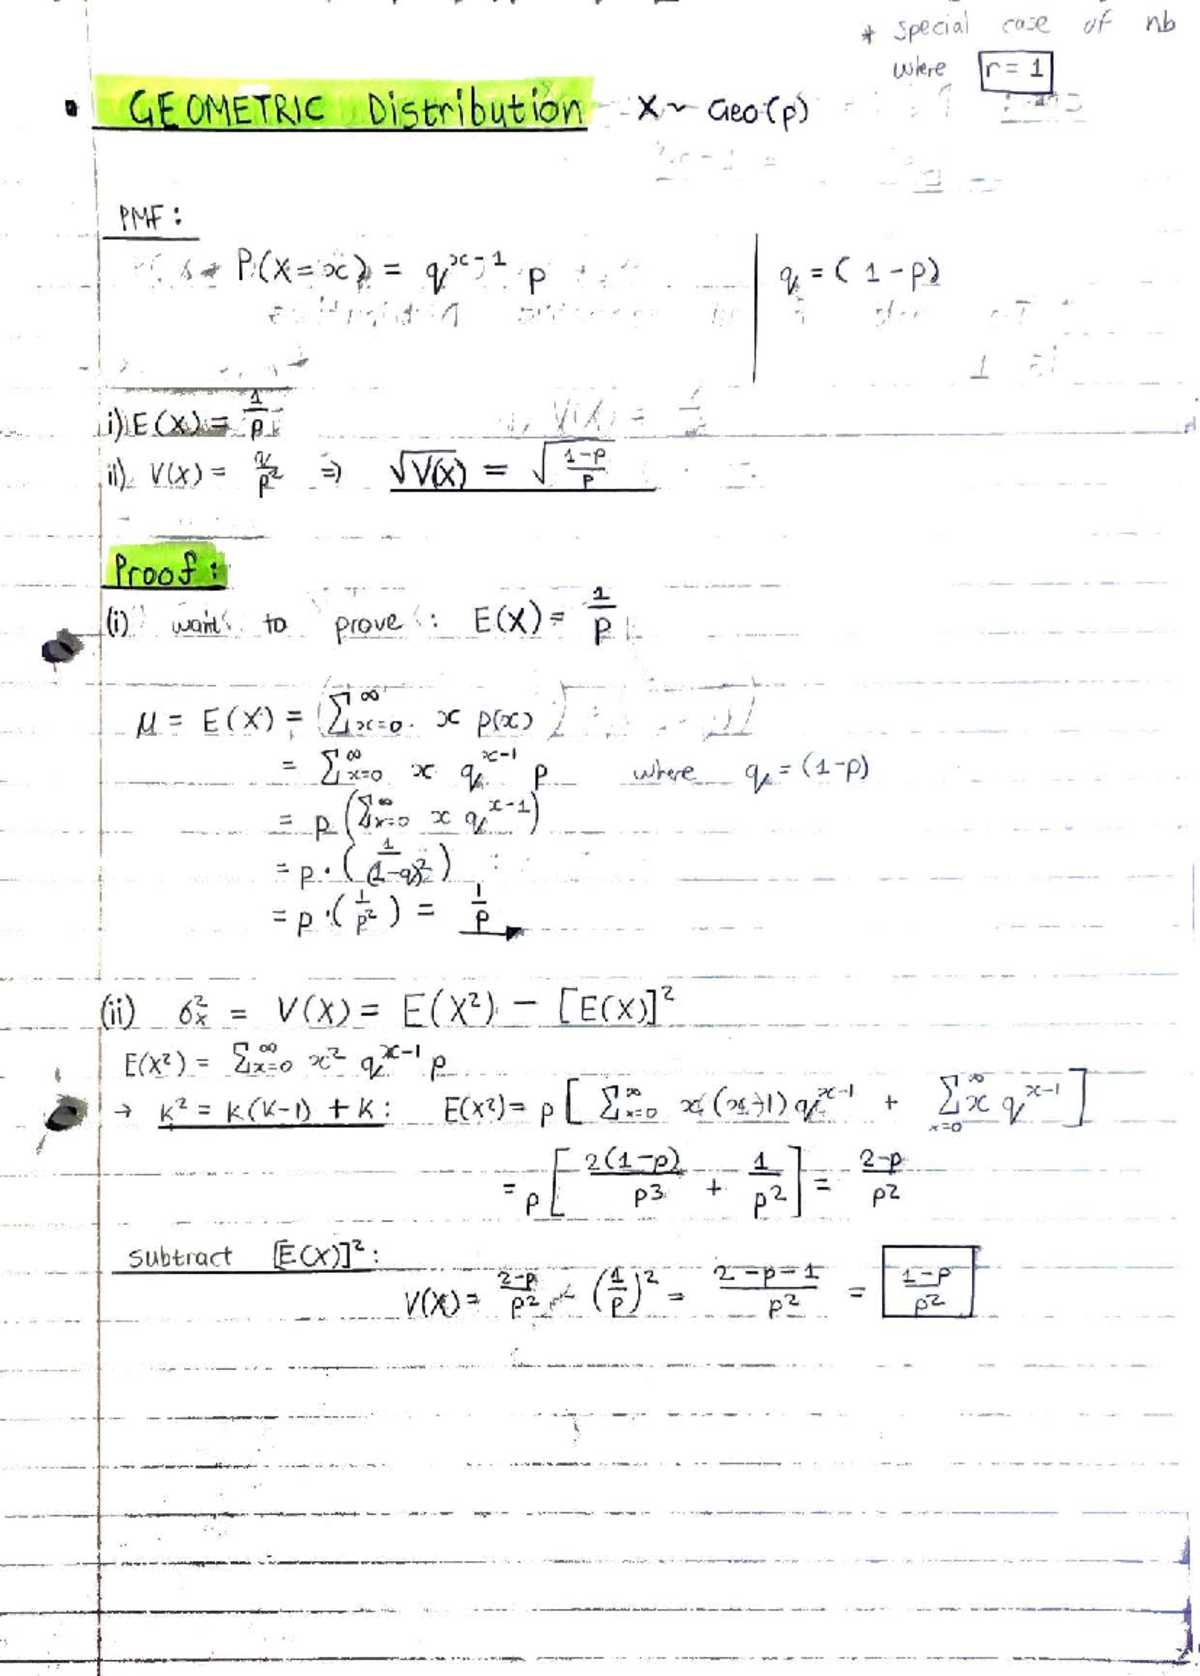 * special case of nb
where r = 1
• GEOMETRIC Distribution X ~ Geo(p)
PMF:
P(X = x) = q^{x-1} p | q = (1-p)
i) E(X) = 1/p
ii) V(X) = q/p² ⇒ √V(X) = √(1-p)/p
Proof:
(i) want to prove: E(X) = 1/p
μ = E(X) = Σ_{x=0}^∞ x p(x)
= Σ_{x=0}^∞ x q^{x-1} p where q = (1-p)
= p (Σ_{x=0}^∞ x q^{x-1})
= p · (1/(1-q)²)
= p · (1/p²) = 1/p
(ii) σ²_x = V(X) = E(X²) - [E(X)]²
E(X²) = Σ_{x=0}^∞ x² q^{x-1} p
→ k² = k(k-1) + k: E(X²) = p [ Σ_{x=0}^∞ x(x-1) q^{x-1} + Σ_{x=0}^∞ x q^{x-1} ]
= p [ 2(1-p)/p³ + 1/p² ] = 2-p/p²
subtract [E(X)]²:
V(X) = 2-p/p² - (1/p)² = 2-p-1/p² = 1-p/p²